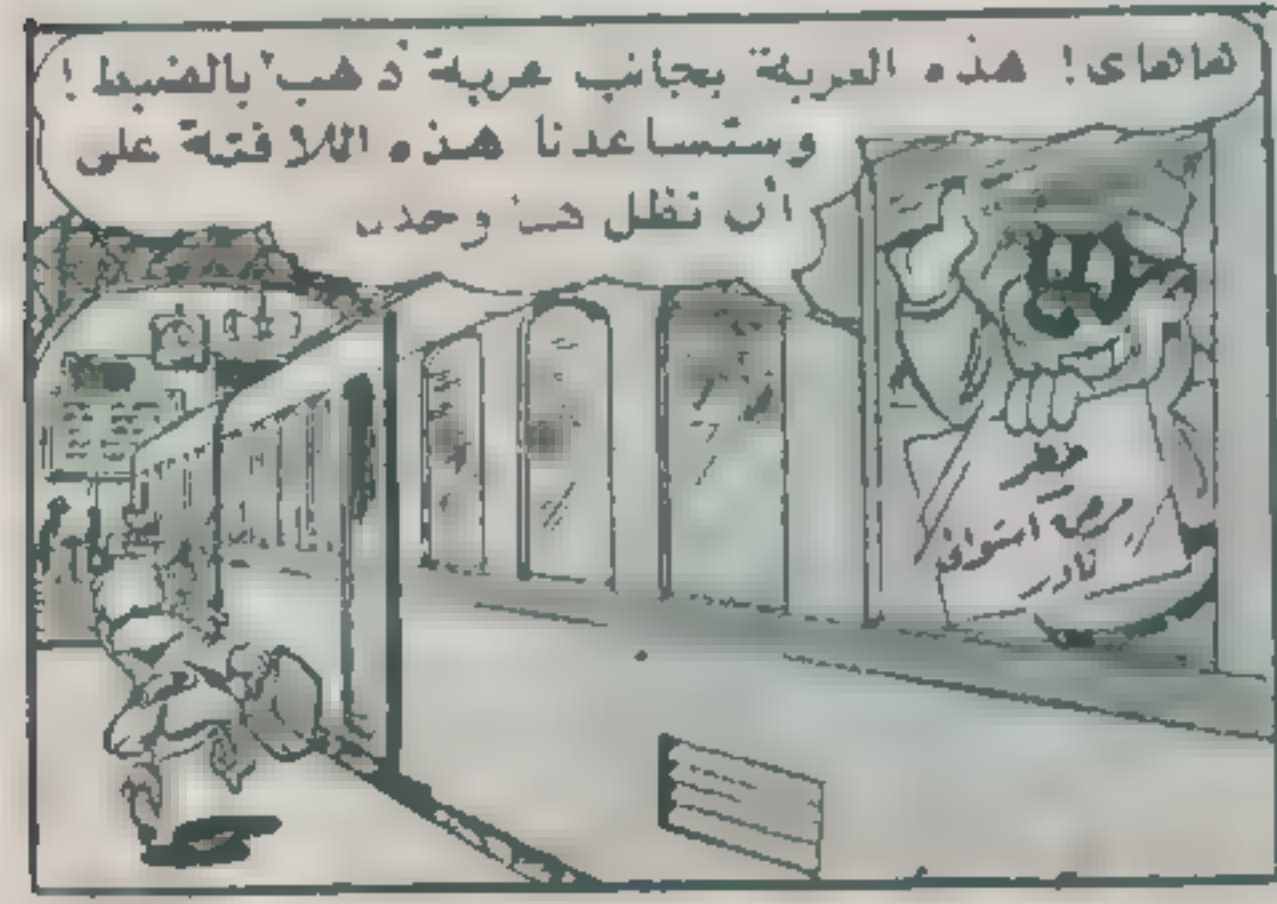 هاهاى! هذه العربة بجانب عربة "دهب" بالضبط!
وستساعدنا هذه اللافتة على
أن نظل هنا وحدنا
خطر
مرض استوائى
نادر